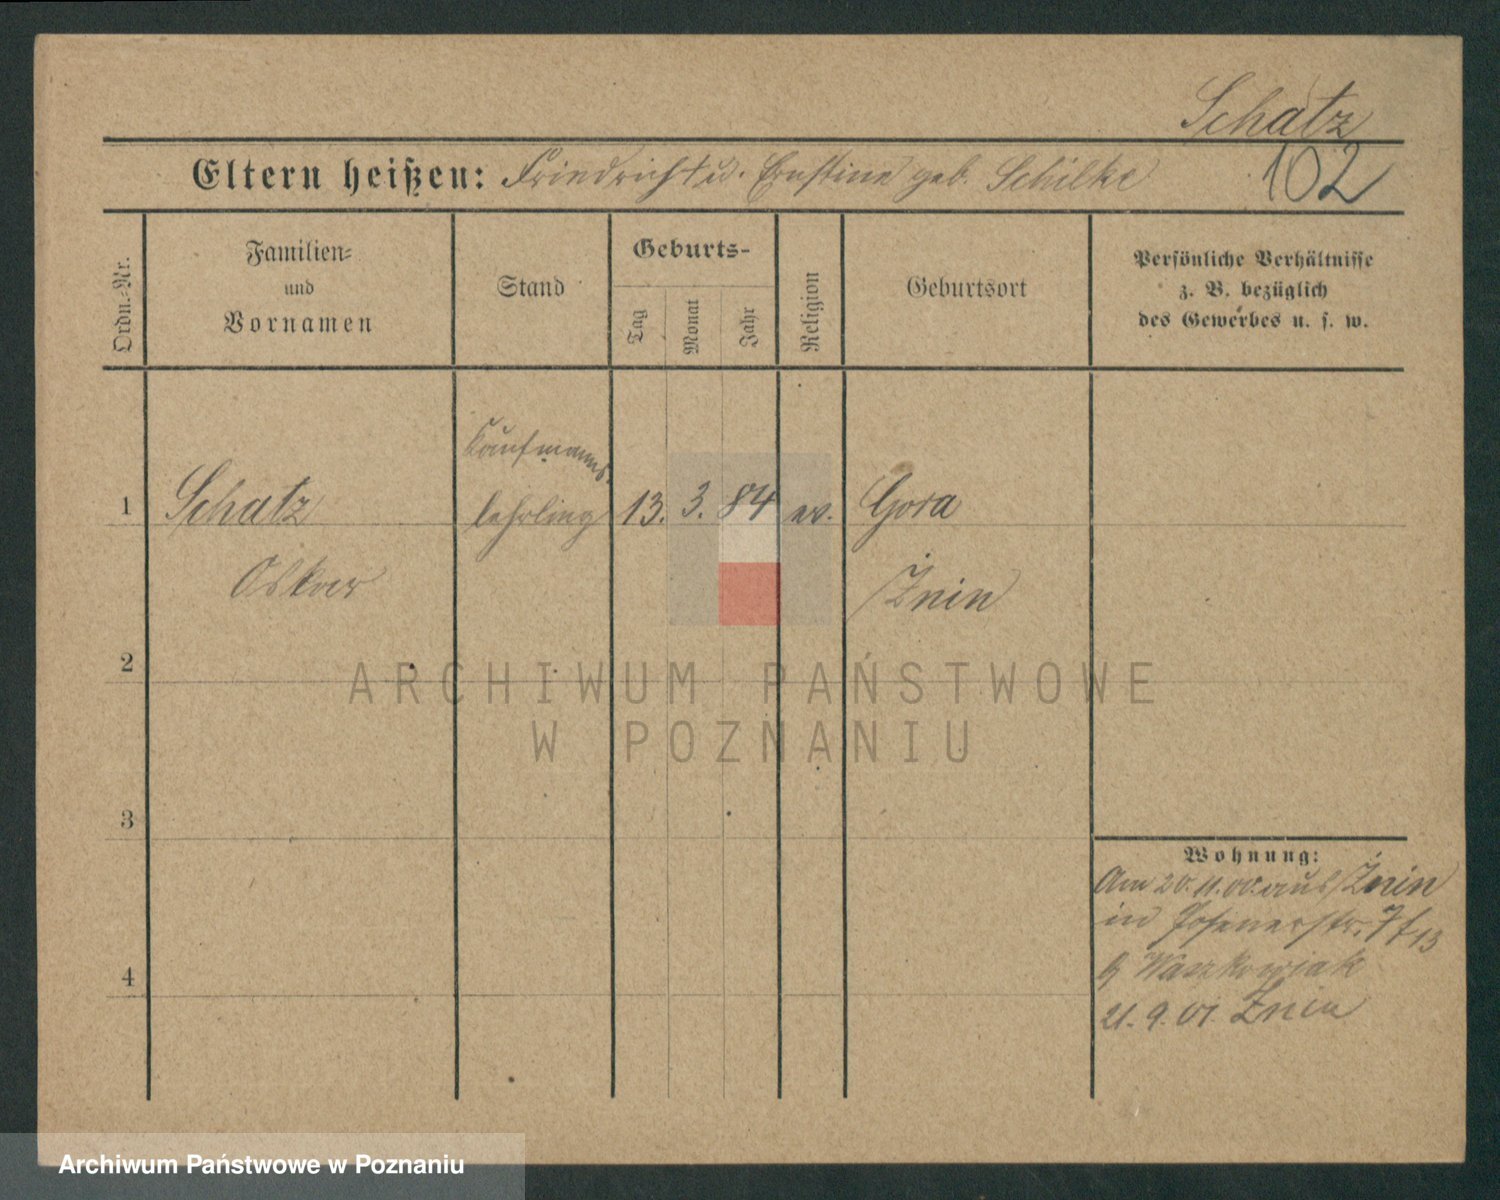 Schatz
102
Eltern heißen: Friedrich u. Ernstine geb. Schilke
Ordn.-Nr.
Familien-
und
Vornamen
Stand
Geburts-
Tag
Monat
Jahr
Religion
Geburtsort
Persönliche Verhältnisse
z. B. bezüglich
des Gewerbes u. s. w.
Kaufmanns
1 Schatz lehrling 13. 3. 84 ev. Gora
Oskar Żnin
2
3
4
Wohnung:
Am 20.11.00. aus Żnin
in Posenerstr. 7 f 13
b/ Waszkowiak
21. 9. 01. Żnin
ARCHIWUM PAŃSTWOWE
W POZNANIU
Archiwum Państwowe w Poznaniu